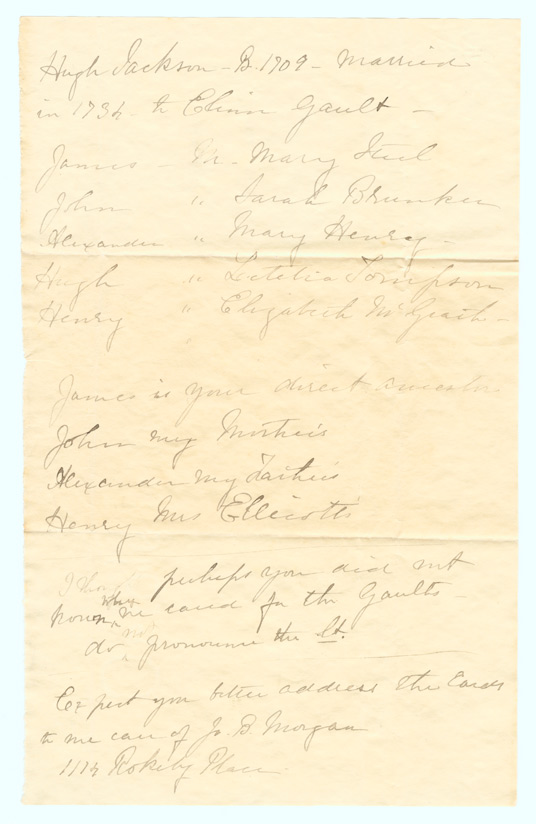 Hugh Jackson - B. 1709 - Married
in 1734 - to Elinn Gault -
James - M. Mary Steel
John " Sarah Brunker
Alexander " Mary Henry -
Hugh " Letetia Tompson
Henry " Elizabeth McGrath -
James is your direct ancestor
John my Mother's
Alexander my Father's
Henry Mrs Ellicott's
I perhaps you did not
know me cared for the Gaults -
do not pronounce the lt.
Expect you better address the Cards
to me care of Jo. B. Morgan
1114 Rokeby Place.